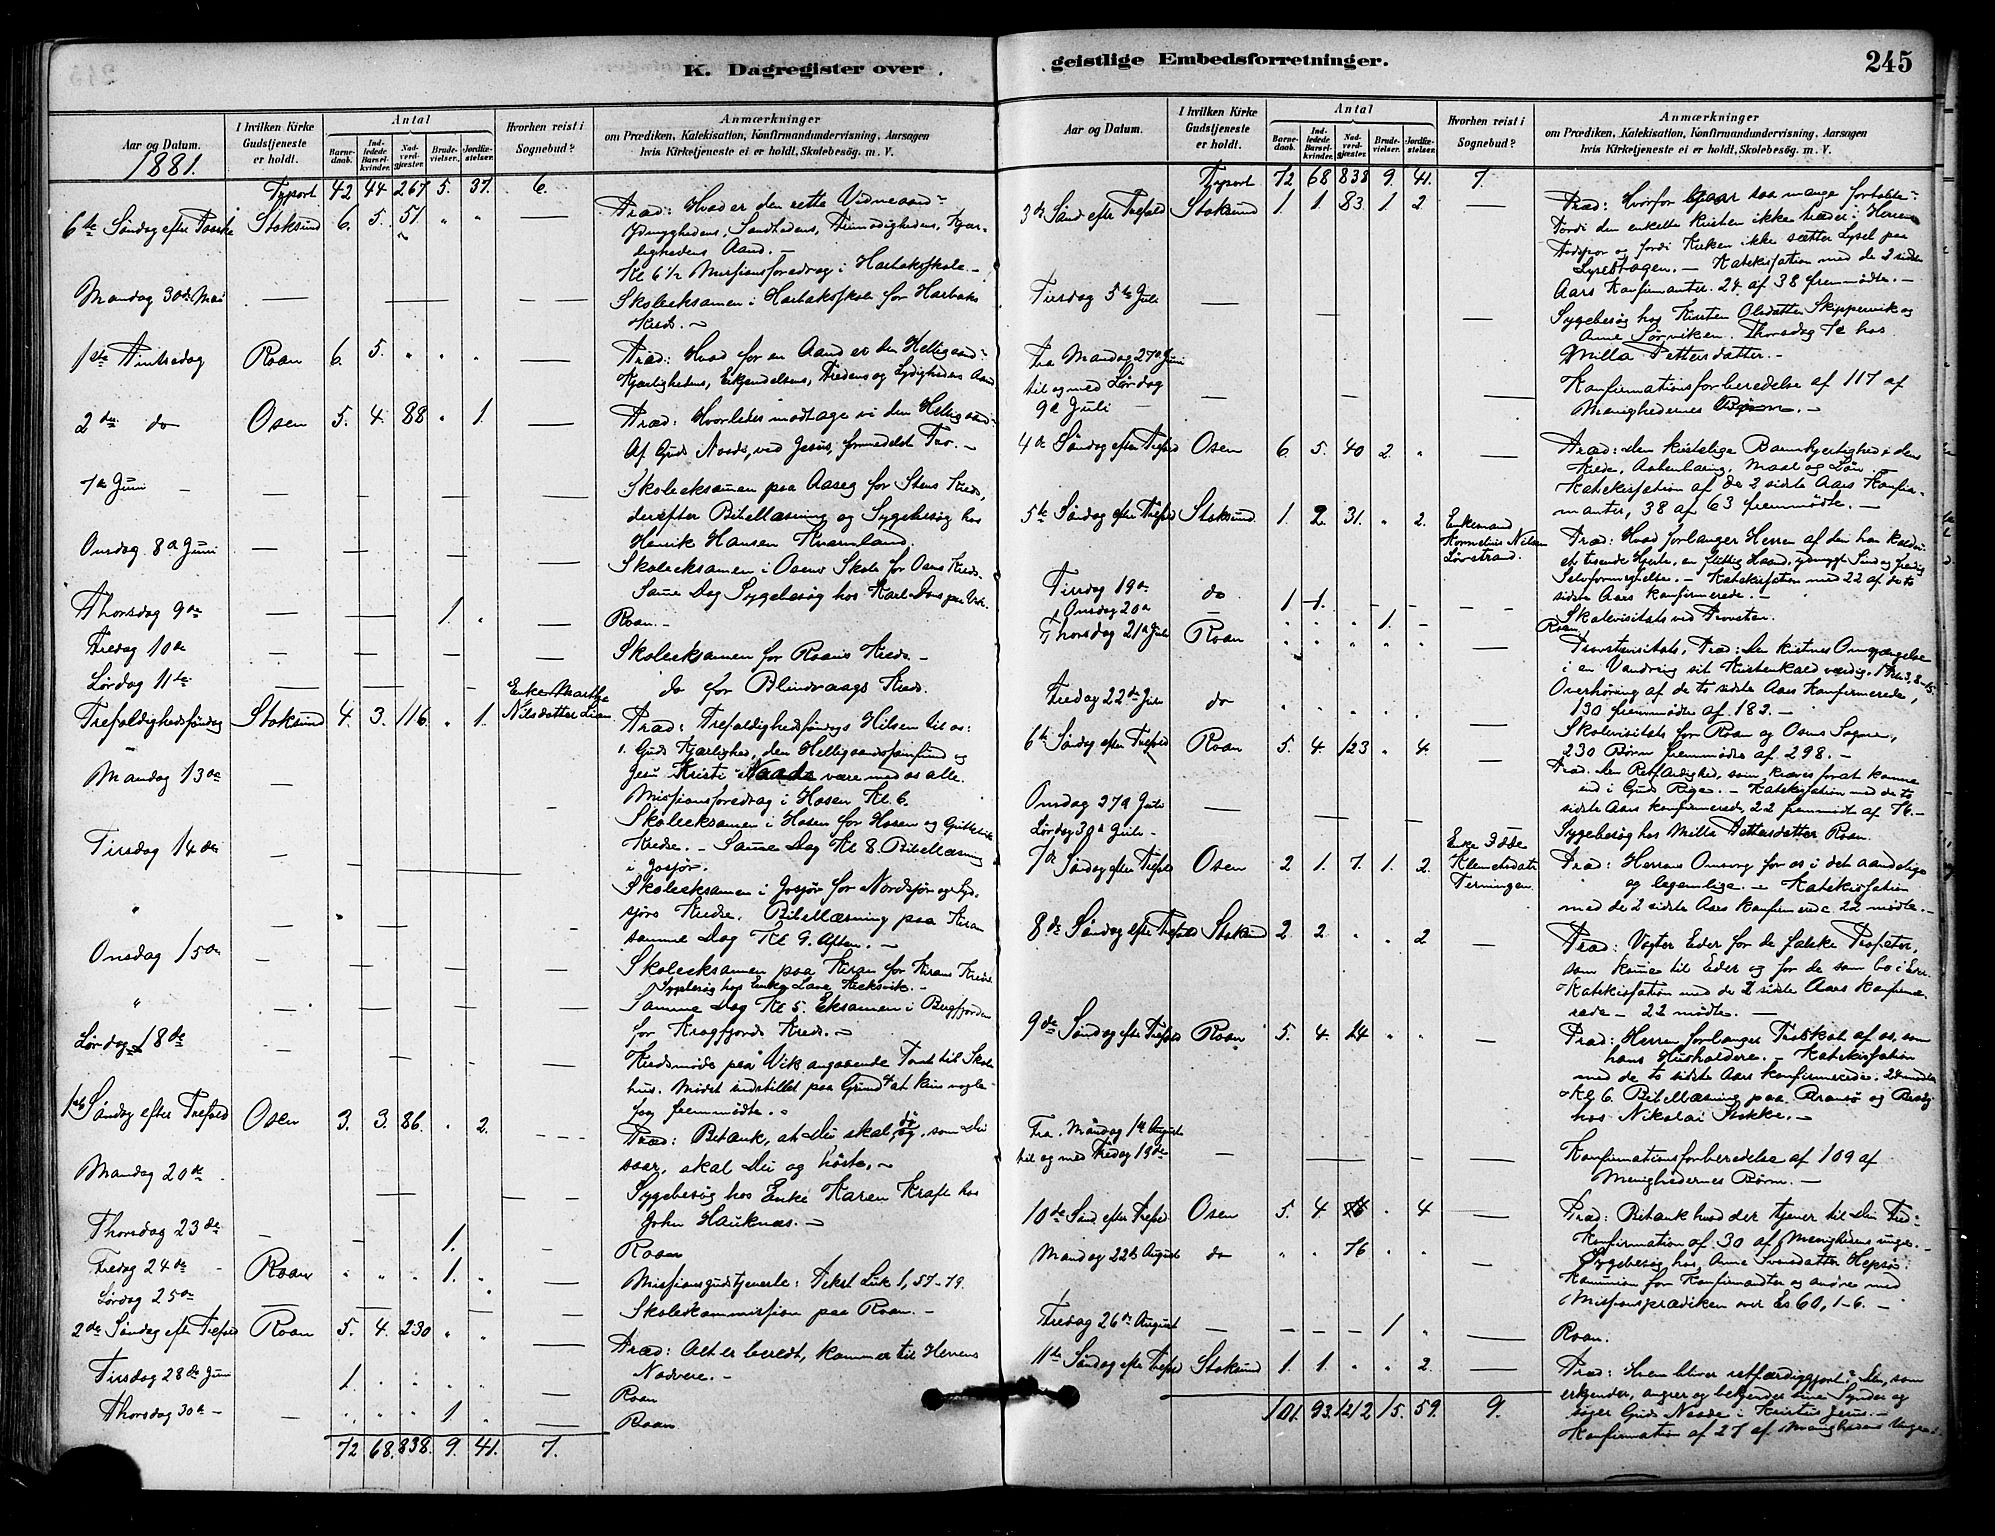 K. Dagregister over
Aar og Datum.
1881.
I hvilken Kirke
Gudstjeneste
er holdt.
Antal
Barne-
daab.
Ind-
ledede
Barsel-
kvinder.
Nad-
verd-
gjæster.
Brude-
vielser.
Jordfæ-
stelser.
Hvorhen reist i
Sognebud?
Anmærkninger
om Prædiken, Katekisation, Konfirmandundervisning, Aarsagen
hvis Kirketjeneste ei er holdt, Skolebesøg. m. V.
42 44 267 5. 37. 6.
6te Søndag efter Paaske Stoksund 6. 5. 51. " " — Præd: Hvad er den rette Vidneaand?
Ydmyghedens, Sandhedens, Frimodighedens, Kjær-
lighedens Aand. —
Kl. 6 1/2 Missionsforedrag i Harbakskole. —
Mandag 30de Mai — Skoleeksamen i Harbakskole for Harbaks
Kreds. —
1ste Pintsedag Roan 6. 5. " " " — Præd: Hvad for en Aand er den Helligaand?
Kjærlighedens, Erkjendelsens, Fredens og Lydighedens Aand.
2den do Osen 5. 4. 88 " 1. — Præd: Hvorledes modtage vi den Helligaand?
Af Guds Naade, ved Jesus, formedelst Tro. —
7de Juni — Skoleeksamen paa Aaseg for Stens Kreds,
derefter Bibellæsning og Sygebesøg hos
Henrik Hansen Kvarnland.
Onsdag 8de Juni — Skoleeksamen i Osens Skole for Osens Kreds.
Samme Dag Sygebesøg hos Karl
Thorsdag 9de — 1. " — Roan. —
Fredag 10de — Skoleeksamen for Roans Kreds —
Lørdag 11te — do for Blindvaags Kreds.
Trefoldighedssøndag Stoksund 4. 3. 116. " 1. Enke Marthe
Nilsdatter Præd: Trefoldighedssøndags Hilsen til os:
1. Guds Kjærlighed, den Helligaands samfund og
Jesu Kristi Naade være med os alle.
Missionsforedrag i Hosen Kl. 6.
Mandag 13de — Skoleeksamen i Hosen for Hosen og
Kredse. — Samme Dag Kl 8. Bibellæsning
i Jossjør.
Tirsdag 14de — Skoleeksamen i Jossjør for Nordsjør og Syd-
sjørs Kredse. Bibellæsning paa Kiran
samme Dag Kl 9. Aften. —
Onsdag 15de — Skoleeksamen paa Kiran for Kirans Kreds
Sygebesøg hos Enke
" — Samme Dag Kl 5. Eksamen i Bergfjorden
for Kragfjords Kreds. —
Lørdag 18de — Kredsmøde paa Vik angaaende Tomt til Skole
hus. Mødet indstillet paa Grund af at kun nogle
faa fremmødte. —
1ste Søndag efter Trefold Osen 3. 3. 86. " 2. Præd: Betænk, at Du skal dø, og, som Du
saar, skal Du og høste. —
Mandag 20de — Sygebesøg hos Enke Karen Kraft hos
John Hauknæs. —
Thorsdag 23de — 1. — Roan
Fredag 24de Roan " " " 1. " — Missionsgudstjeneste: Tekst Luk 1, 57-79.
Lørdag 25de — Skolekommission paa Roan. —
2den Søndag efter Trefold Roan 5. 4. 230 " " — Præd: Alt er beredt, kommer til Herrens
Nadvere. —
Tirsdag 28de Juni 1. " " " " — Roan
Thorsdag 30te — " " " 1 " — Roan
72 68. 838. 9. 41. 7.
geistlige Embedsforretninger.
245
Aar og Datum.
I hvilken Kirke
Gudstjeneste
er holdt.
Antal
Barne-
daab.
Ind-
ledede
Barsel-
kvinder.
Nad-
verd-
gjæster.
Brude-
vielser.
Jordfæ-
stelser.
Hvorhen reist i
Sognebud?
Anmærkninger
om Prædiken, Katekisation, Konfirmandundervisning, Aarsagen
hvis Kirketjeneste ei er holdt, Skolebesøg. m. V.
72 68 838 9. 41. 7
3die Sønd efter Trefold Stoksund 1. 1 83. 1 2. — Præd: Hvorfor gaar saa mange fortabte?
Fordi den enkelte Kristen ikke træder i Herrens
Fodspor og fordi Kirken ikke sætter Lyset paa
Lysestagen. — Katekisation med de 2 sidste
Aars Konfirmanter. 24 af 38 fremmødte. —
Tirsdag 5te Juli — Sygebesøg hos Kirsten Olsdatter Skippervik og
Anne Sørviken. Thorsdag 7de hos
Milla Pettersdatter. —
Fra Mandag 27de Juni
til og med Lørdag
9de Juli — Konfirmationsforberedelse af 117 af
Menighedernes Børn. —
4de Søndag efter Trefold Osen 6 5. 40 2. " — Præd: Den kristelige Barmhjertighed i dens
Kilde, Aabenbaring, Maal og Løn. —
Katekisation af de 2 sidste Aars Konfir-
manter, 38 af 63 fremmødte. —
5te Søndag efter Trefold Stoksund. 1. 2. 31. " 2. Enkemand
Kornelius Nilsen
Lørstrand. Præd: Hvad forlanger Herren af den han kalder?
et troende Hjerte, en flittig Haand, ydmygt Sind og freidig
Selvfornegtelse. — Katekisation med 22 af de to
sidste Aars konfirmerede. —
Tirsdag 19de do 1 1. — Skolevisitats ved Provsten.
Onsdag 20de — 1. — Roan
Thorsdag 21de Juli Roan " " " " Provstevisitats, Præd: Den kristnes Omgjængelse
i en Vandring sit Kristenkald værdig. 1 Pet. 3, 8-15
Overhøring af de to sidste Aars Konfirmerede,
130 fremmødte af 183. —
Fredag 22de Juli do " " " " " Skolevisitats for Roan og Osens Sogne,
230 Børn fremmødte af 298. —
6te Søndag efter Trefold Roan 5. 4. 123 " 4. — Præd. Den Retfærdighed, som kræves for at komme
ind i Guds Rige. — Katekisation med de to
sidste Aars konfirmerede, 22 fremmødt af 76. —
Onsdag 27de Juli — Sygebesøg hos Milla Pettersdatter Roan.
Lørdag 30te Juli —
7de Søndag efter Trefold Osen 2 1. 7. 1. 2. Enke
Klemetsdatter
Terningen. Præd: Herrens Omsorg for os i det aandelige
og legemlige. — Katekisation
med de 2 sidste Aars konfirmerede 22 mødte. —
8de Søndag efter Trefold Stoksund 2 2. " " 2 — Præd: Vogter Eder for de falske Profeter,
som komme til Eder og for de som bo i Eder.
Katekisation med de 2 sidste Aars konfirme-
rede — 22 mødte. —
9de Søndag efter Trefold Roan 5. 4. 24 " " — Præd: Herren forlanger Troskab af os, som
hans Husholdere. — Katekisation
med de to sidste Aars konfirmerede. 24 mødte
Kl 6. Bibellæsning paa Brandsø og
hos Nikolai Stokke. —
Fra Mandag 14 August
til og med Fredag 19de — Konfirmationsforberedelse af 109 af
Menighedernes Børn. —
10de Sønd efter Trefold Osen 5. 4. " 4 — Præd: Betænk hvad der tjener til Din Fred.
Konfirmation af 30 af Menighedens unge. —
Mandag 22de August do " " 76 " " — Sygebesøg hos Anne Svendsdatter Hepsø.
Kommunion for Konfirmanter og andre med
Missionsprædiken over Es. 60, 1-6. —
Fredag 26de August — 1 " — Roan.
11te Søndag efter Trefold Stoksund 1. 1. " " 2. — Præd: Hvem bliver retfærdiggjort? Den, som
erkjender, angrer og bekjender sine Synder og
søger Guds Naade i Kristus Jesus. —
Konfirmation af 27 af Menighedens Unge.
101. 93. 1212. 15. 59. 9.